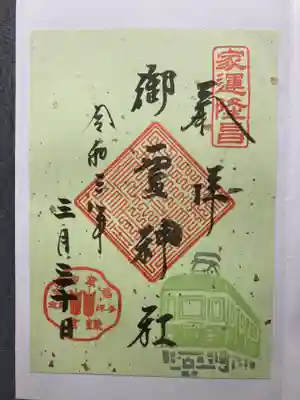 家運隆昌
奉拝
御霊神社
令和三年
三月三十日